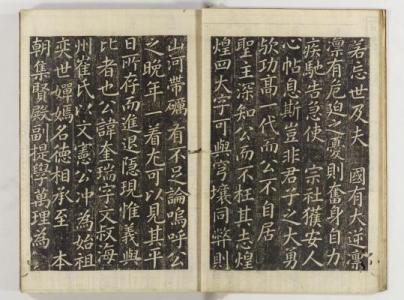 若忘世及夫 國有大逆凛
凛有危迫之憂則奮身自力
疾馳告急使 宗社獲安人
心帖息斯豈非君子之大勇
歟功高一代而公不自居
聖主深知公而不枉其志煌
煌四大字可與穹壤同弊則
山河帶礪有不足論嗚呼公
之晚年一着尤可以見其平
日所存而進退隱現惟義與
比者也公諱奎瑞字文叔海
州崔氏以文憲公冲為始祖
奕世嬋嫣名德相承至 本
朝集賢殿副提學萬理為